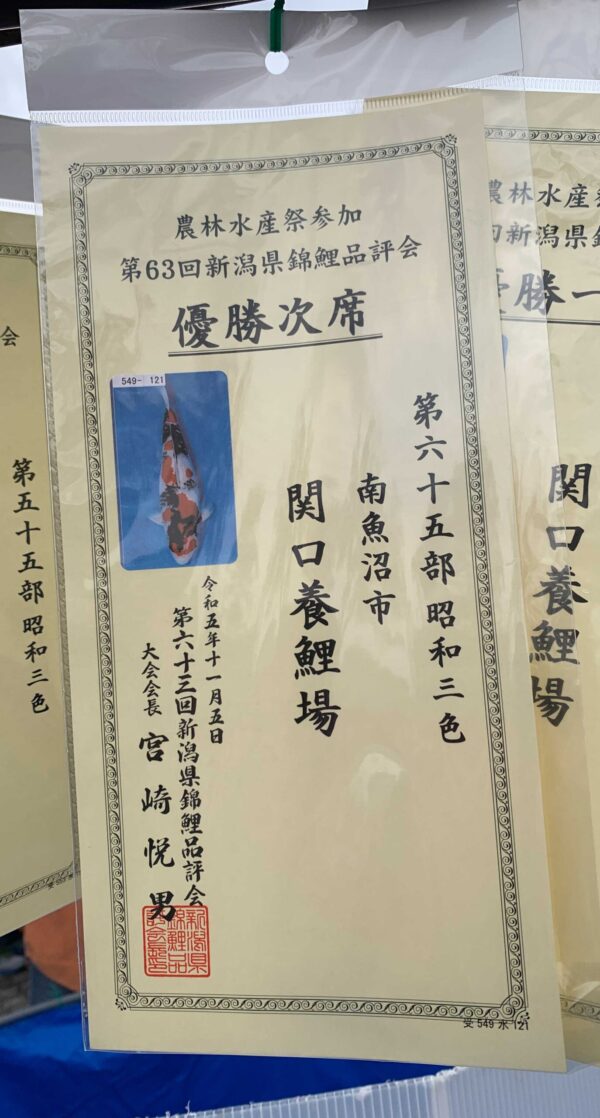 農林水産祭参加
第63回新潟県錦鯉品評会
優勝次席
549- 121
第六十五部 昭和三色
南魚沼市
関口養鯉場
令和五年十一月五日
第六十三回新潟県錦鯉品評会
大会会長 宮崎悦男
受 549 水 121
農林水産
新潟県錦
勝一
関口養鯉場
会
第五十五部 昭和三色